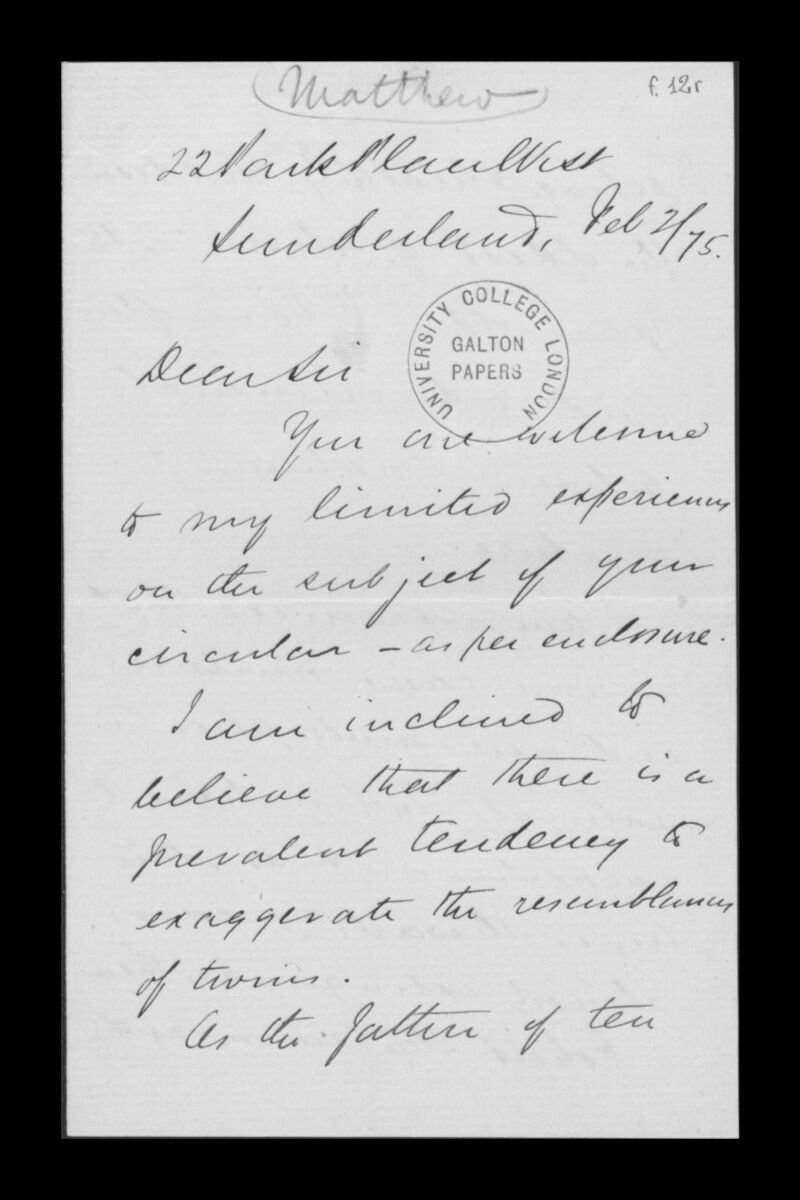 Matthew
f. 12r
22 Park Place West
Sunderland, Feb 2/75.
UNIVERSITY COLLEGE LONDON
GALTON
PAPERS
Dear Sir
You are welcome
to my limited experiences
on the subject of your
circular - as per enclosure.
I am inclined to
believe that there is a
prevalent tendency to
exaggerate the resemblances
of twins.
As the father of ten